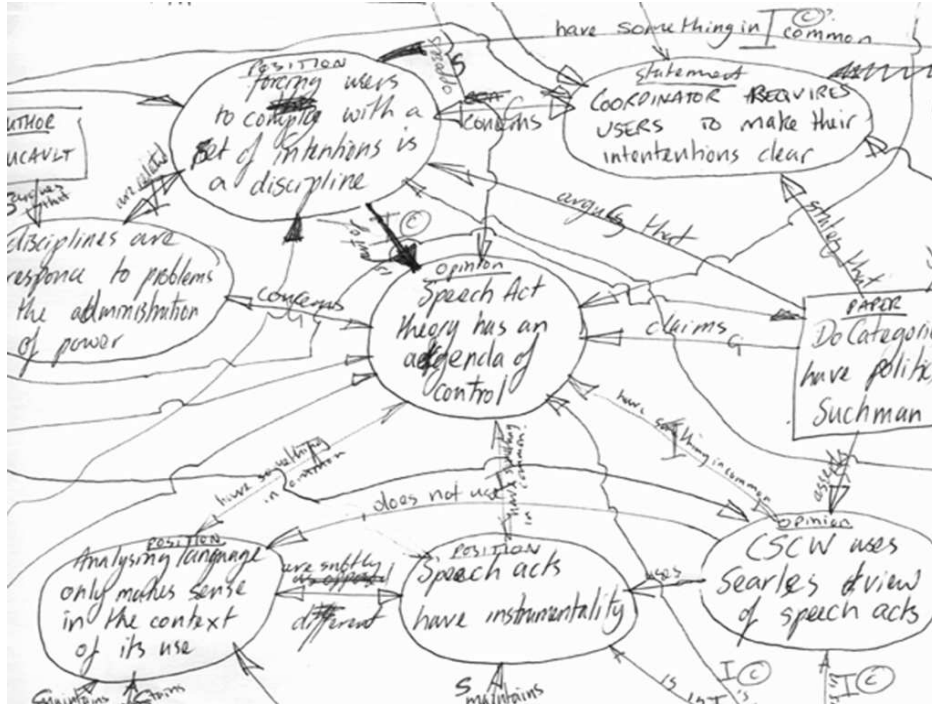 have something in I ©?
common
POSITION
forcing users
to comply with a
set of intentions is
a discipline
speaks
S
concerns
G
statement
COORDINATOR REQUIRES
USERS TO make their
intentions clear
UTHOR
UCAULT
that
are related
argues that
G
states that
disciplines are
responce to problems
the administration
of power
is part of
I ©
concerns
opinion
Speech Act
theory has an
agenda of
control
claims
G
PAPER
Do Categori
have politic
Suchman
have something
in common
have something in common
I
have
in common?
does not use
asserts
POSITION
Analysing language
only makes sense
in the context
of its use
are subtly
different
POSITION
Speech acts
have instrumentality
uses
opinion
CSCW uses
Searles view
of speech acts
maintains
S
maintains
I ©
is
I ©